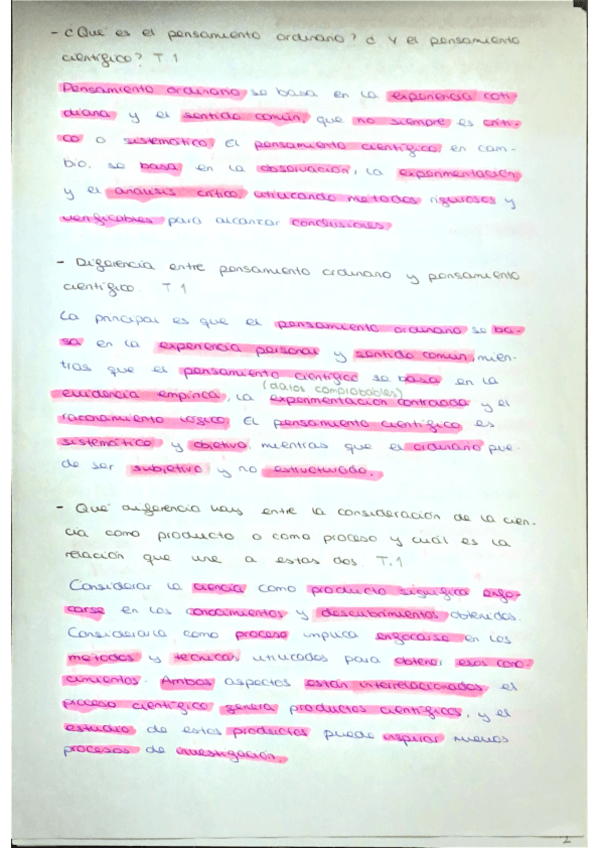 - ¿Qué es el pensamiento ordinario? ¿ Y el pensamiento
científico? T1
Pensamiento ordinario se basa en la experiencia coti-
diana y el sentido común, que no siempre es críti-
co o sistemático. El pensamiento científico, en cam-
bio, se basa en la observación, la experimentación
y el análisis crítico, utilizando métodos rigurosos y
verificables para alcanzar conclusiones.
- Diferencia entre pensamiento ordinario y pensamiento
científico. T1
La principal es que el pensamiento ordinario se ba-
sa en la experiencia personal y sentido común, mien-
tras que el pensamiento científico se basa en la
(datos comprobables)
evidencia empírica, la experimentación controlada y el
razonamiento lógico. El pensamiento científico es
sistemático y objetivo, mientras que el ordinario pue-
de ser subjetivo y no estructurado.
- Qué diferencia hay entre la consideración de la cien-
cia como producto o como proceso y cuál es la
relación que une a estas dos. T.1
Considerar la ciencia como producto significa enfo-
carse en los conocimientos y descubrimientos obtenidos.
Considerarla como proceso implica enfocarse en los
métodos y técnicas utilizados para obtener esos cono-
cimientos. Ambos aspectos están interrelacionados, el
proceso científico genera productos científicos, y el
estudio de estos productos puede inspirar nuevos
procesos de investigación.